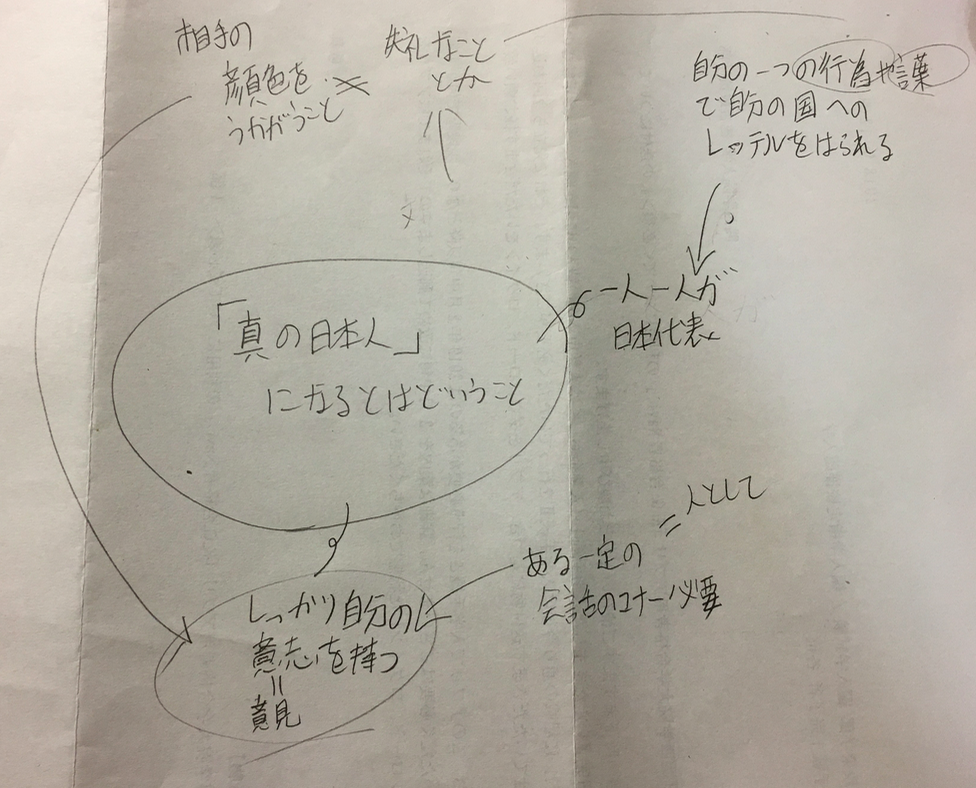 相手の
顔色を
うかがうこと
失礼なこと
とか
自分の一つの行為や言葉
で自分の国への
レッテルをはられる
一人一人が
日本代表
「真の日本人」
になるとはどういうこと
人として
ある一定の
会話のマナー必要
しっかり自分の
意志を持つ
=
意見